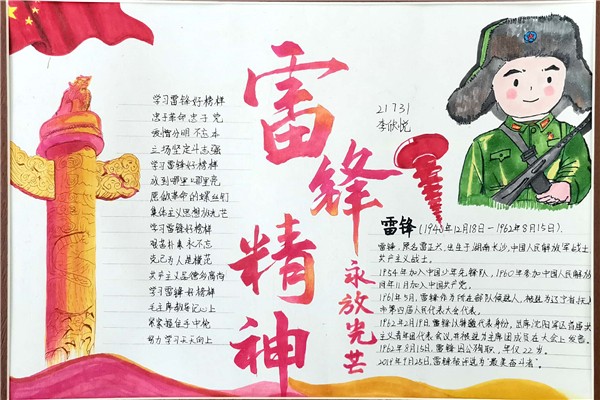 雷锋精神
永放光芒
21731
李欣悦
学习雷锋好榜样
忠于革命忠于党
爱憎分明不忘本
立场坚定斗志强
学习雷锋好榜样
放到哪里哪里亮
愿做革命的螺丝钉
集体主义思想放光芒
学习雷锋好榜样
艰苦朴素永不忘
克己为人是模范
共产主义品德多高尚
学习雷锋好榜样
毛主席教导记心上
紧紧握住手中枪
努力学习天天向上
雷锋(1940年12月18日-1962年8月15日).
雷锋,原名雷正兴,出生于湖南长沙,中国人民解放军战士
共产主义战士。
1954年加入中国少年先锋队,1960年参加中国人民解放
同年11月加入中国共产党。
1961年5月,雷锋作为所在部队候选人,被选为辽宁省抚
市第四届人民代表大会代表。
1962年2月19日,雷锋以特邀代表身份,出席沈阳军区首届共
主义青年团代表会议,并被选为主席团成员在大会上发言。
1962年8月15日,雷锋因公殉职,年仅22岁。
2019年9月25日,雷锋被评选为"最美奋斗者"。